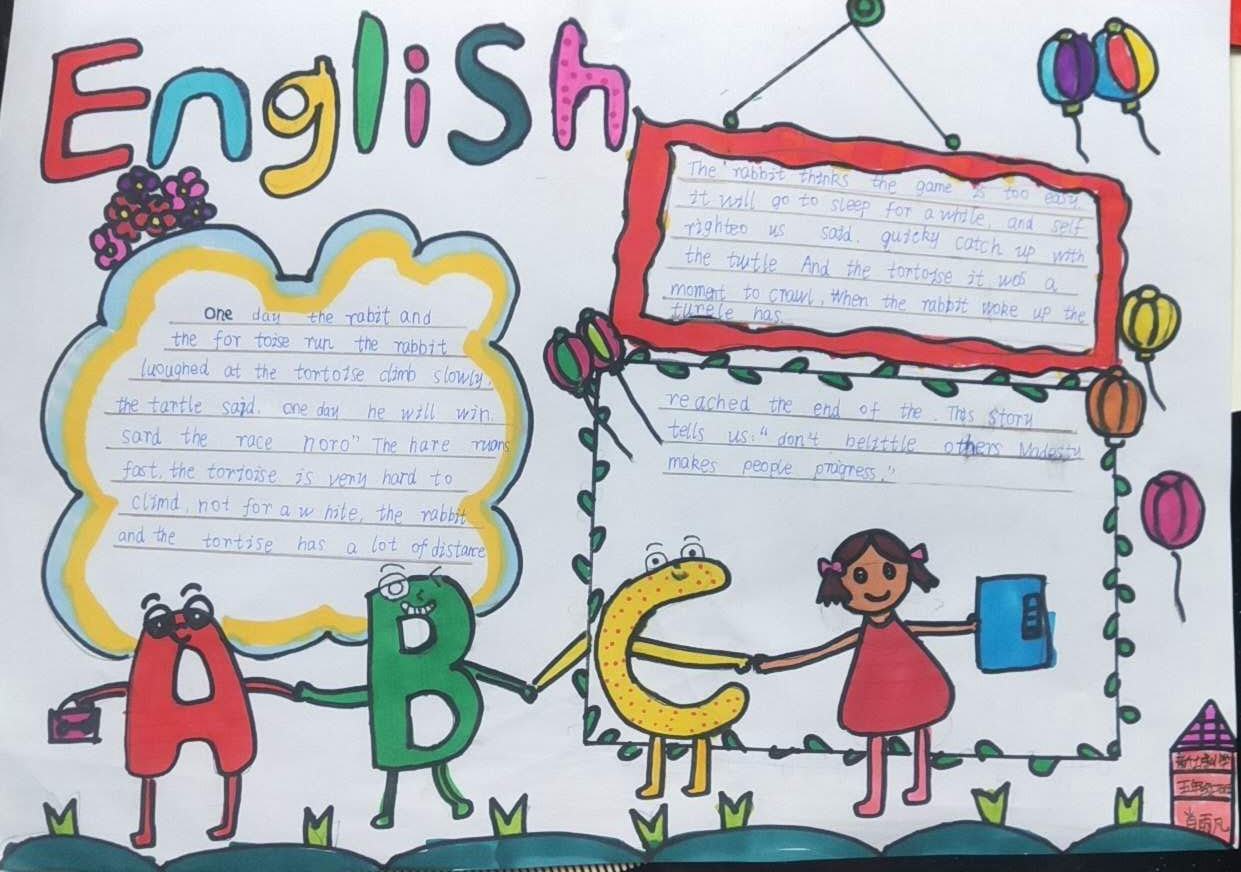 English
One day the rabit and
the for toise run the rabbit
luoughed at the tortoise climb slowly,
the tartle said. one day he will win.
sard the race noro" The hare ruons
fast, the tortoise is very hard to
climd, not for a w hite, the rabbit
and the tortise has a lot of distance
The rabbit thinks the game is too easy,
it will go to sleep for a while, and self
righteo us said. quicky catch up with
the turtle And the tortoise it was a
moment to crawl, When the rabbit woke up the
turele has
reached the end of the. This Story
tells us: "don't belittle others Modesty
makes people progress."
A B C
五年级
肖雨凡